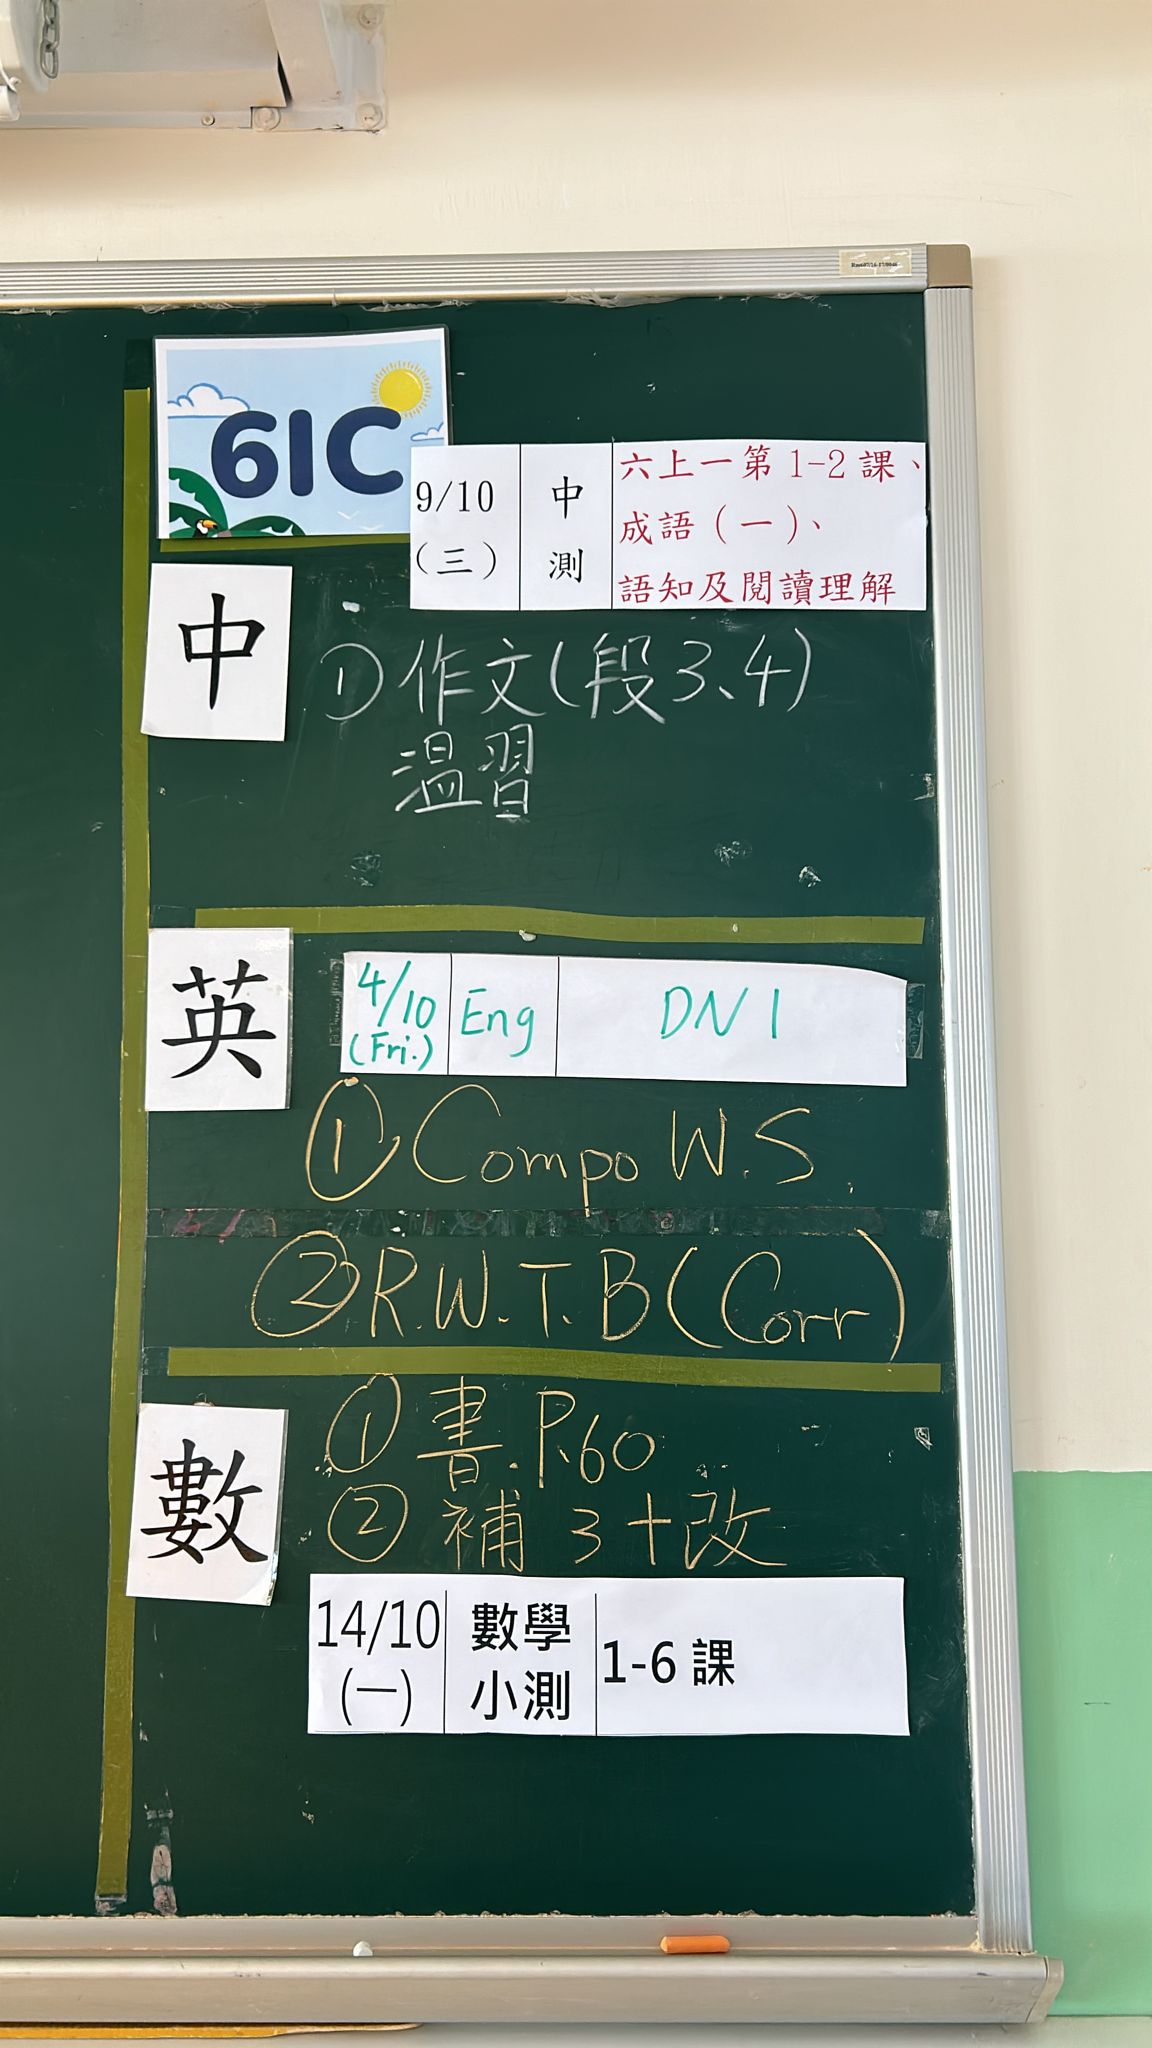 6IC
9/10
(三)
中
測
六上一第1-2課、
成語(一)、
語知及閱讀理解
中
①作文(段3、4)
溫習
英
4/10
(Fri.)
Eng
DN 1
①Compo W.S.
②R.W.T.B(Corr)
數
①書.P.60
②補3+改
14/10
(一)
數學
小測
1-6課